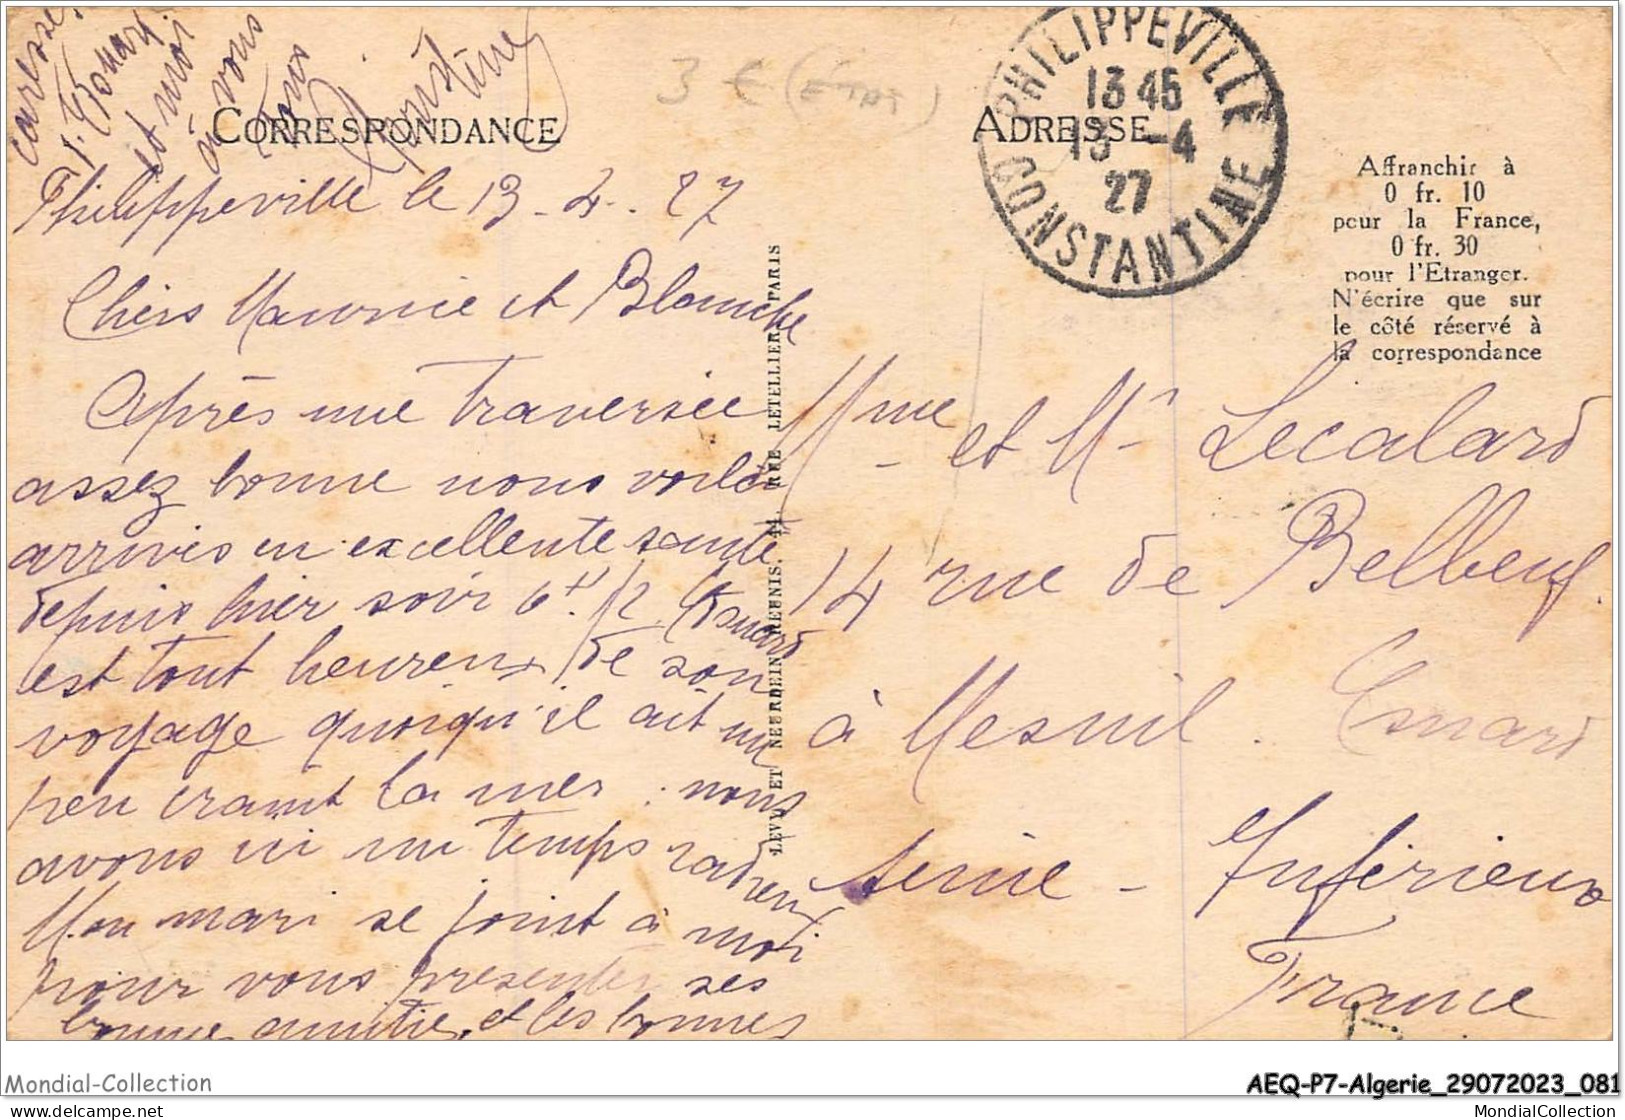 caresses
et moi
à vous
tous
CORRESPONDANCE
3 € (ÉTAT)
Philippeville le 13-4-27
Chers Maurice et Blanche
Après une traversée
assez bonne nous voilà
arrivés en excellente santé
depuis hier soir 6H 1/2.
est tout heureux de son
voyage quoiqu'il ait un
peu craint la mer. nous
avons ici un temps radieux
Mon mari se joint à moi
pour vous présenter ses
bonne amitie et les bonnes
LEVY ET NEURDEIN REUNIS, 44 RUE LETELLIER, PARIS
ADRESSE
PHILIPPEVILLE
13 45
13 -4
27
CONSTANTINE
Affranchir à
0 fr. 10
pour la France,
0 fr. 30
pour l'Etranger.
N'écrire que sur
le côté réservé à
la correspondance
Mme et Mr Lecalard
14 rue de Belbeuf.
à Mesnil. Esnard
Seine - Inférieure
France
Mondial-Collection
AEQ-P7-Algerie_29072023_081
delcampe.net
MondialCollection